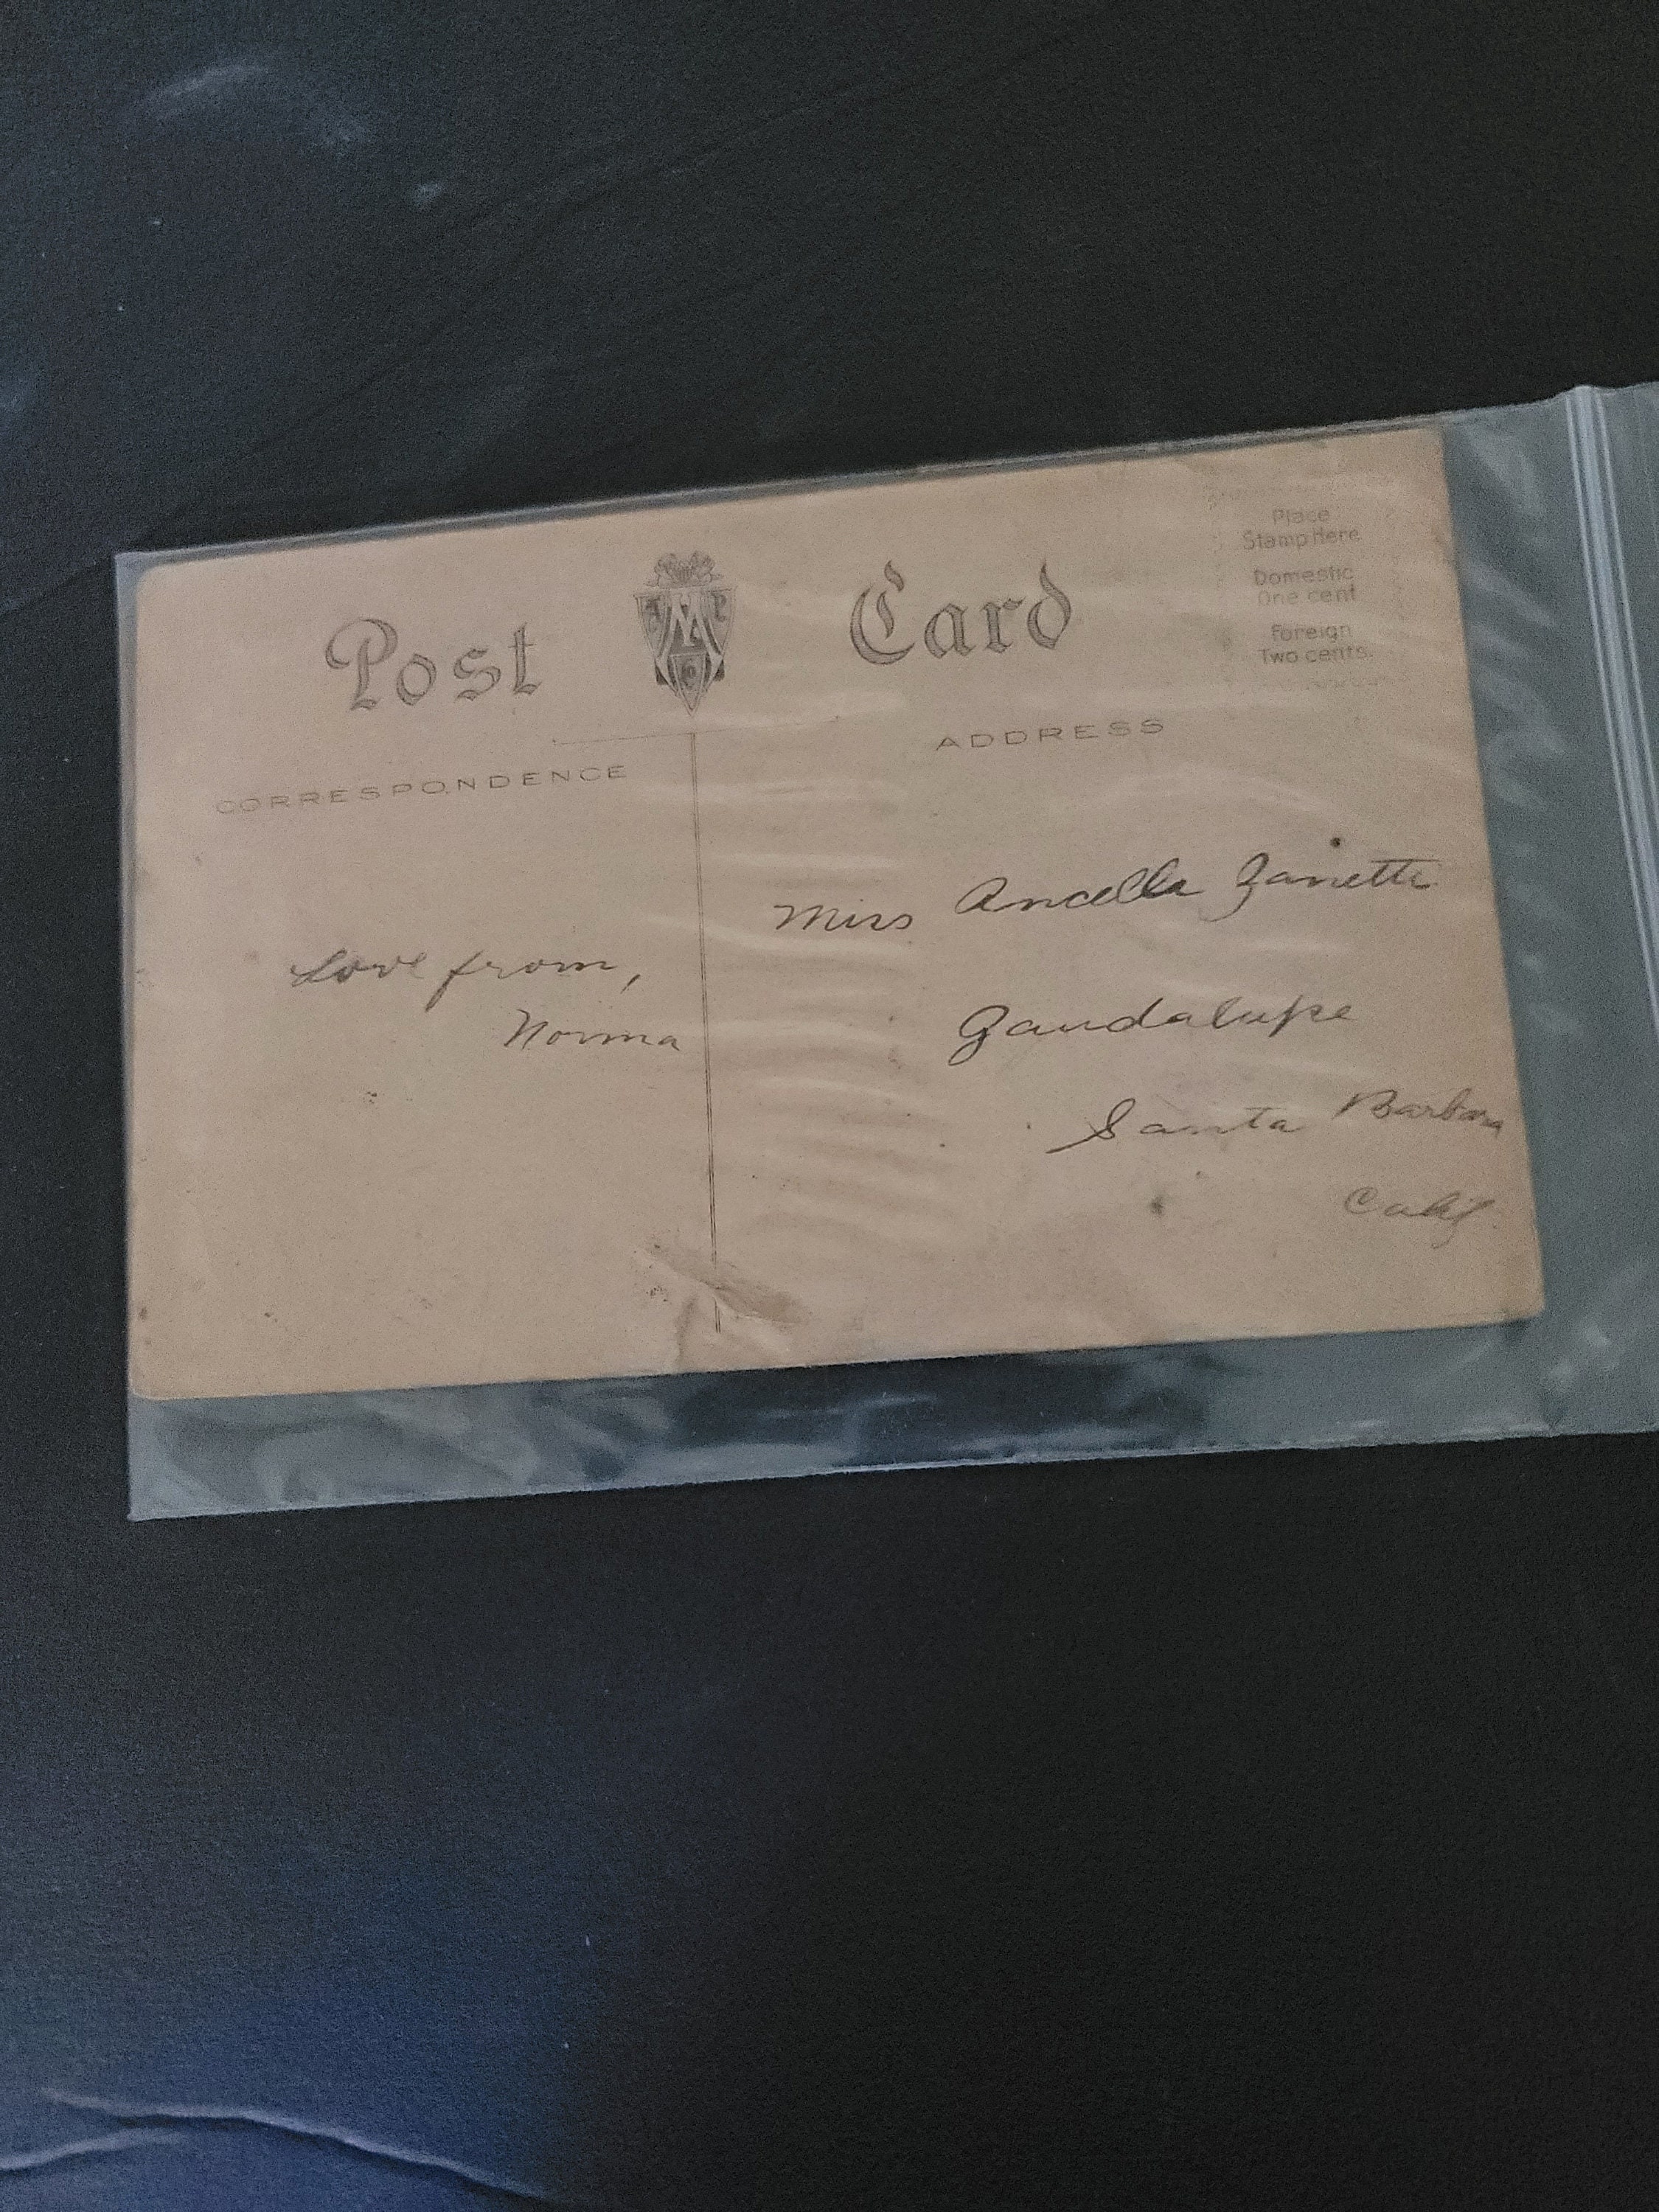 Post Card
Place
Stamp Here
Domestic
One cent
Foreign
Two cents.
CORRESPONDENCE
ADDRESS
Love from,
Norma
Miss Ancella Zanetti
Gaudalupe
Santa Barbara
Calif.